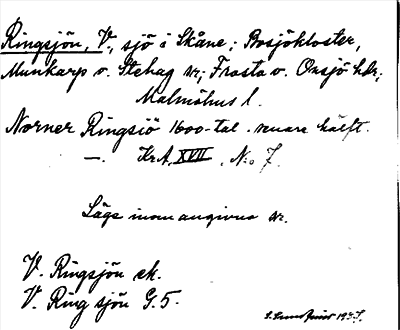 Ringsjön, V., sjö i Skåne; Bosjökloster,
Munkarp o. Stehag sr; Frosta o. Onsjö hdr;
Malmöhus l.
Norner Ringsiö 1600-tal. senare hälft.
—. Kr.A. XVII, N:o 7.
Lägs inom angivna sr.
V. Ringsjön ek.
V. Ringsjön G.5.